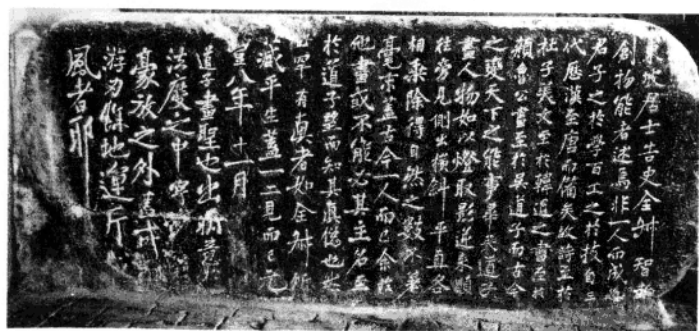 坡居士告史全叔智
創物能者述焉非一人而成
君子之於學百工之於技自三
代歷漢至唐而備矣故詩至於
杜子美文至於韓退之書至於
顏魯公畫至於吳道子而古今
之變天下之能事畢矣道子
畫人物如以燈取影逆來順
往旁見側出橫斜平直各
相乘除得自然之數不差
毫末蓋古今一人而已余於
他畫或不能必其主名至
於道子望而知其真偽也然
罕有真者如全叔所
藏平生蓋一二見而已元
豐八年十一月
道子畫聖也出新意
法度之中寄妙
豪放之外蓋
游刃餘地運斤
風者耶